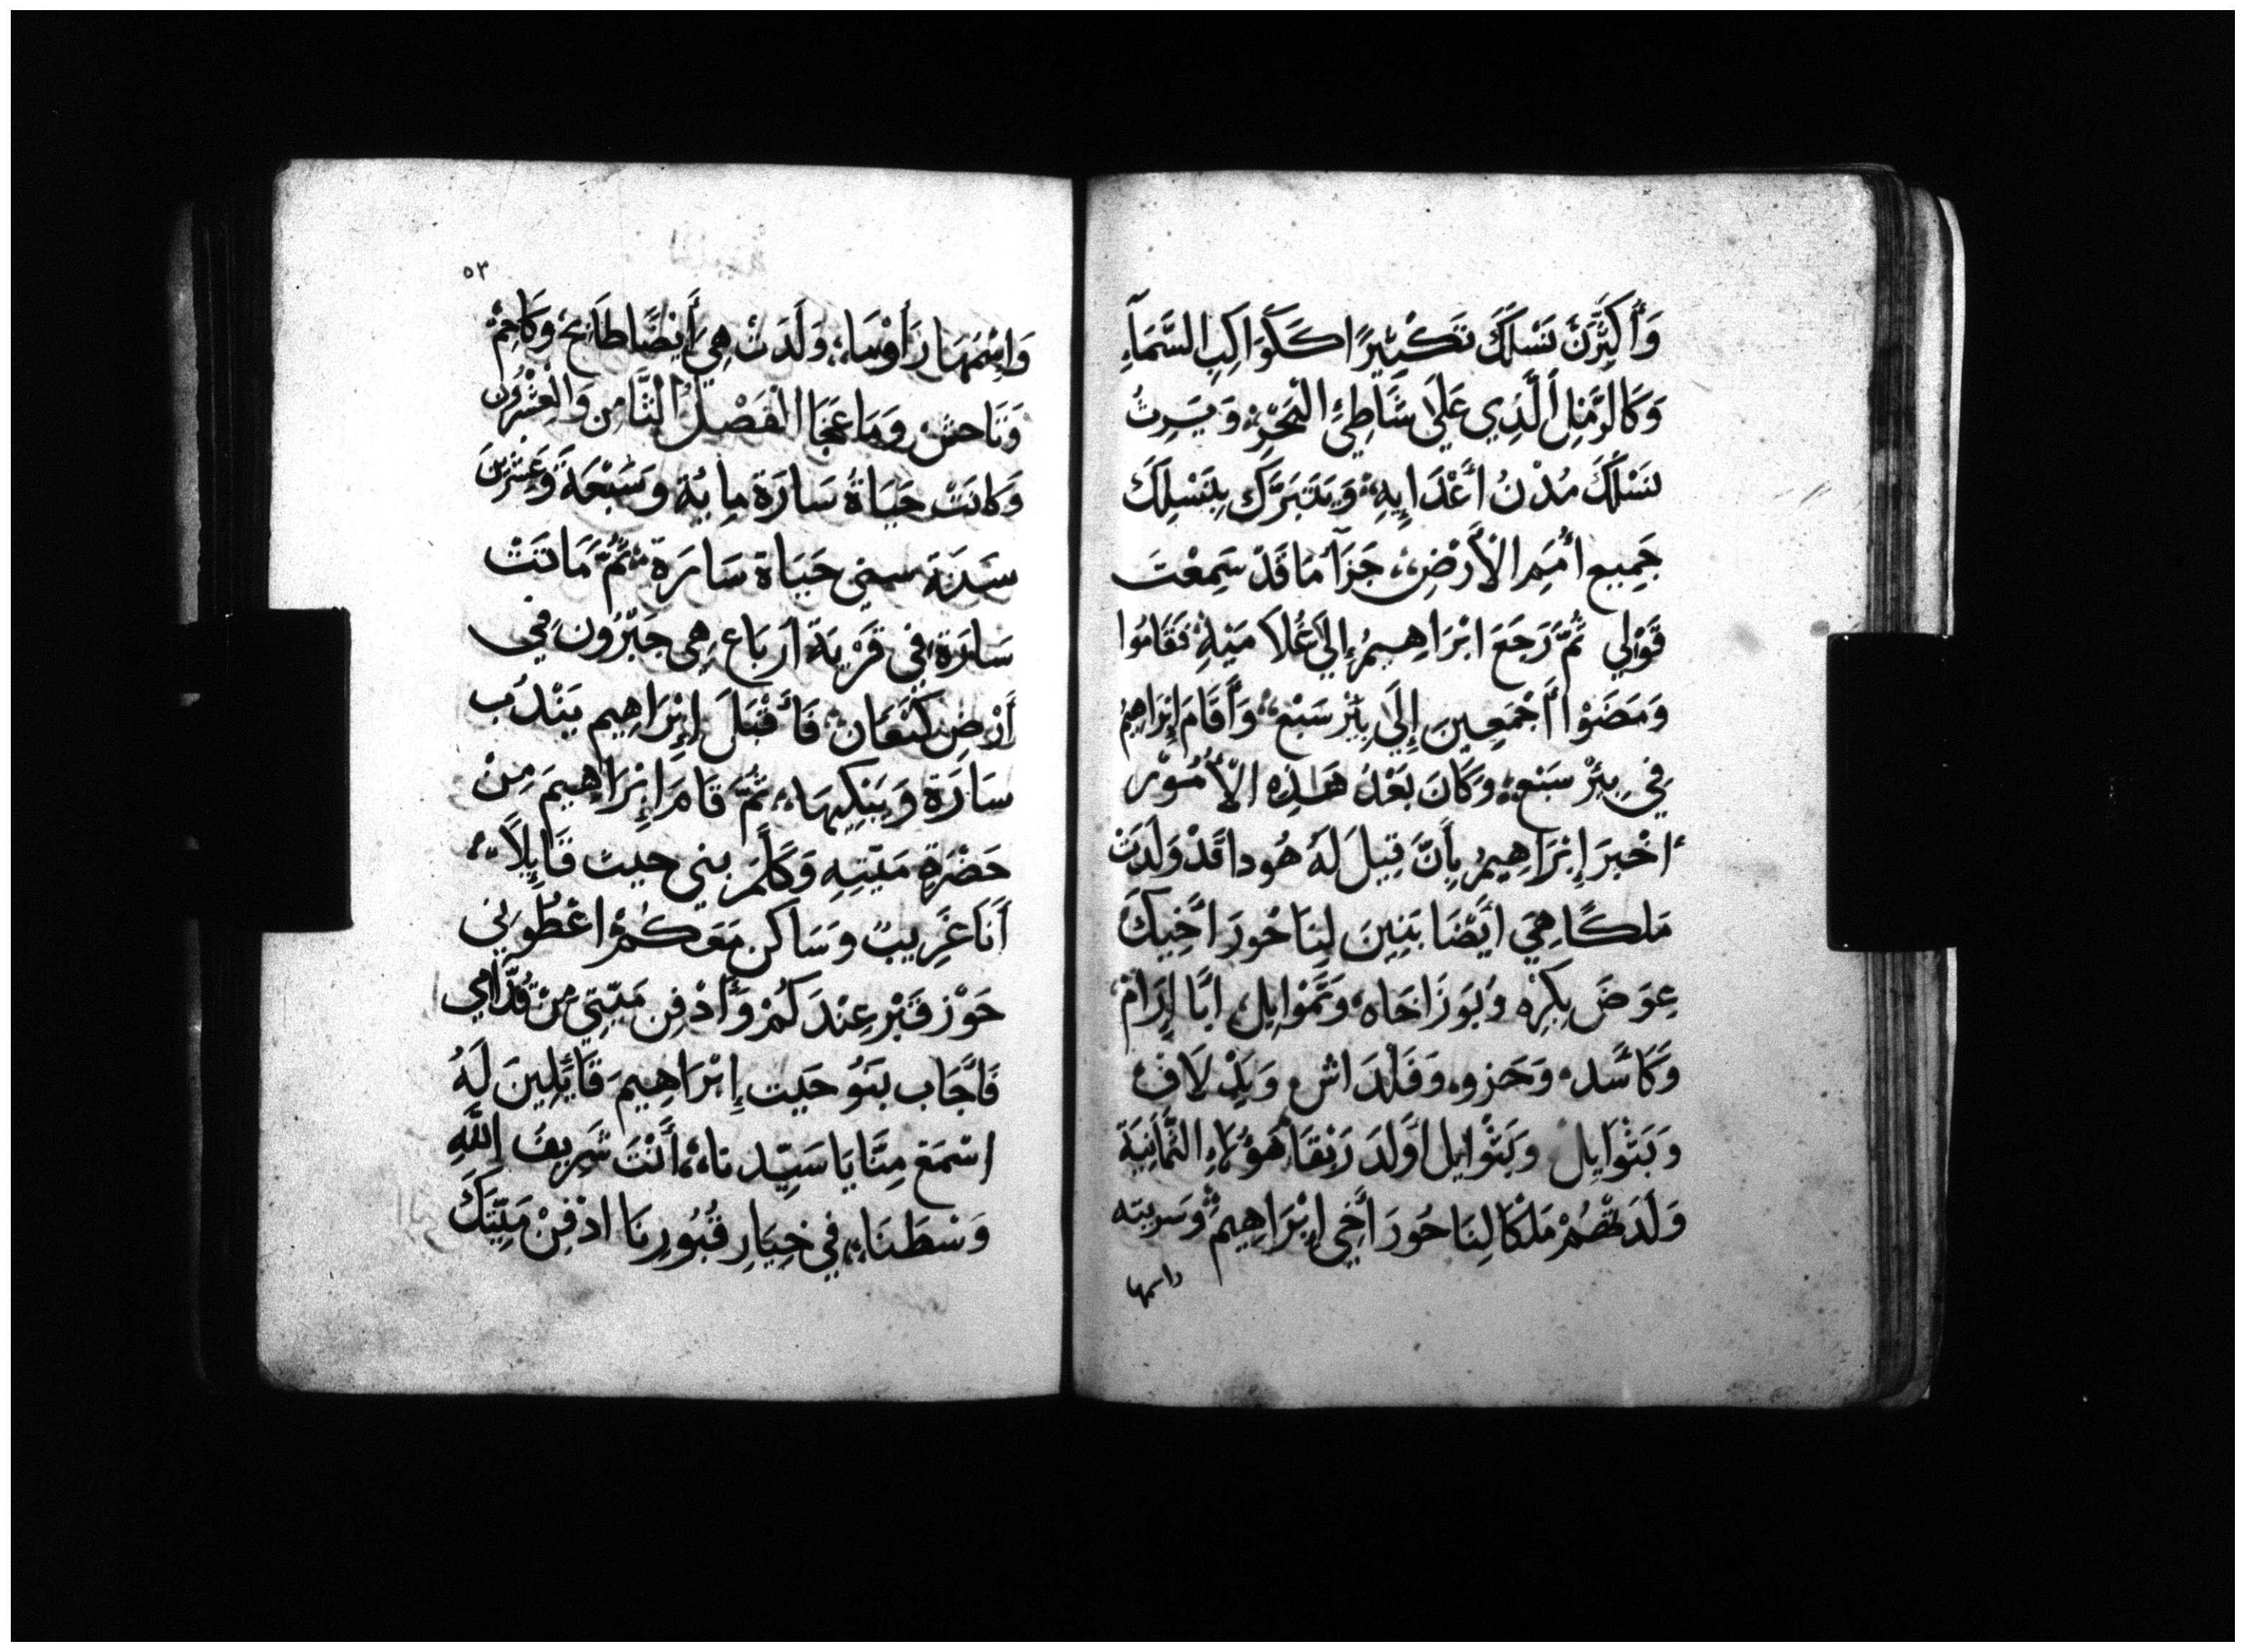 وَأُكَثِّرَنَّ نَسْلَكَ تَكْثِيرًا كَكَوَاكِبِ السَّمَآءِ
وَكَالرَّمْلِ الَّذِي عَلَى شَاطِئِ الْبَحْرِ، وَيَرِثُ
نَسْلُكَ مُدْنُ أَعْدَايِهِ، وَيَتَبَرَّك بِنَسْلِكَ
جَمِيع أُمَمِ الأَرْضِ، جَزَآ مَا قَدْ سَمِعْتَ
قَوْلِي ثُمَّ رَجَعَ ابْرَاهِيمُ إِلَى غُلَامَيْهِ، فَقَامُوا
وَمَضَوْا أَجْمَعِينَ إِلَى بِئْرِ سَبْع، وَأَقَامَ إِبْرَاهِيمُ
فِي بِئْرِ سَبْع، وَكَانَ بَعْدُ هَذِهِ الأُمُوْر
اخْبَرَ إِبْرَاهِيمُ بِأَنَّ قِيلَ لَهُ هُودا قَدْ وَلَدَتْ
مَلكًا هِيَ ايْضَا بَنِينَ لِنَاحُورَ اخِيكَ
عِوَضَ بِكرِه وَبَوزَ اخَاه، وَقَمْوايل ابَا إِرَامْ
وَكَاسَد، وَحَزو، وَفَلْدَاش وَيِدْلَافْ
وَبَتْوَايِل وَبَتْوايل اوْلَدَ رَبْقَا هَؤُلَاءِ الثَّمَانِيَة
وَلَدَتْهُمْ مَلْكَا لِنَاحُورَ أَخِي إِبْرَاهِيمَ وَسريته
واسمها
٥٣
وَاسْمُهَا رَأوْمَا، وَلَدَتْ هِيَ أَيْضًا طَابَحْ وَكَاحَمْ
وَنَاحَش وَمَاعَجَا الفَصْلُ الثَّامِن وَالْعِشْرُون
وَكانَتْ حَيَاةُ سَارَة مِايُة وَسَبْعَةَ وَعِشْرِينَ
سَنَة سني حَيَاة سَارَة ثُمَّ مَاتَتْ
سَارَة في قَرْيَة ارْبَاع هِي حَبْرُون فِي
أَرْضِ كَنْعَان، فَأَقْبَلَ إِبْرَاهِيم يَنْدُب
سَارَة وَيَبْكِيهَا، ثُمَّ قَامَ إِبْرَاهِيمَ مِنْ
حَضْرَةِ مَيّتِهِ وَكَلَّمَ بني حيث قَايِلًا
أَنَا غَرِيبٌ وَسَاكن مَعَكُمْ اعْطُونِي
حَوْز قَبْر عِنْدَكُمْ وَأَدْفِن مَيّتِي مِنْ قُدَّامِي
فَاجَاب بَنَوُ حَيث إِبْرَاهِيمَ قَايِلِينَ لَهُ
اسْمَعْ مِنَّا يَا سَيِّدنا، أَنْتَ شَرِيف اللَّهِ
وَسْطَنَا، فِي خِيَارِ قُبُورِنَا ادْفِنْ مَيِّتَكَ